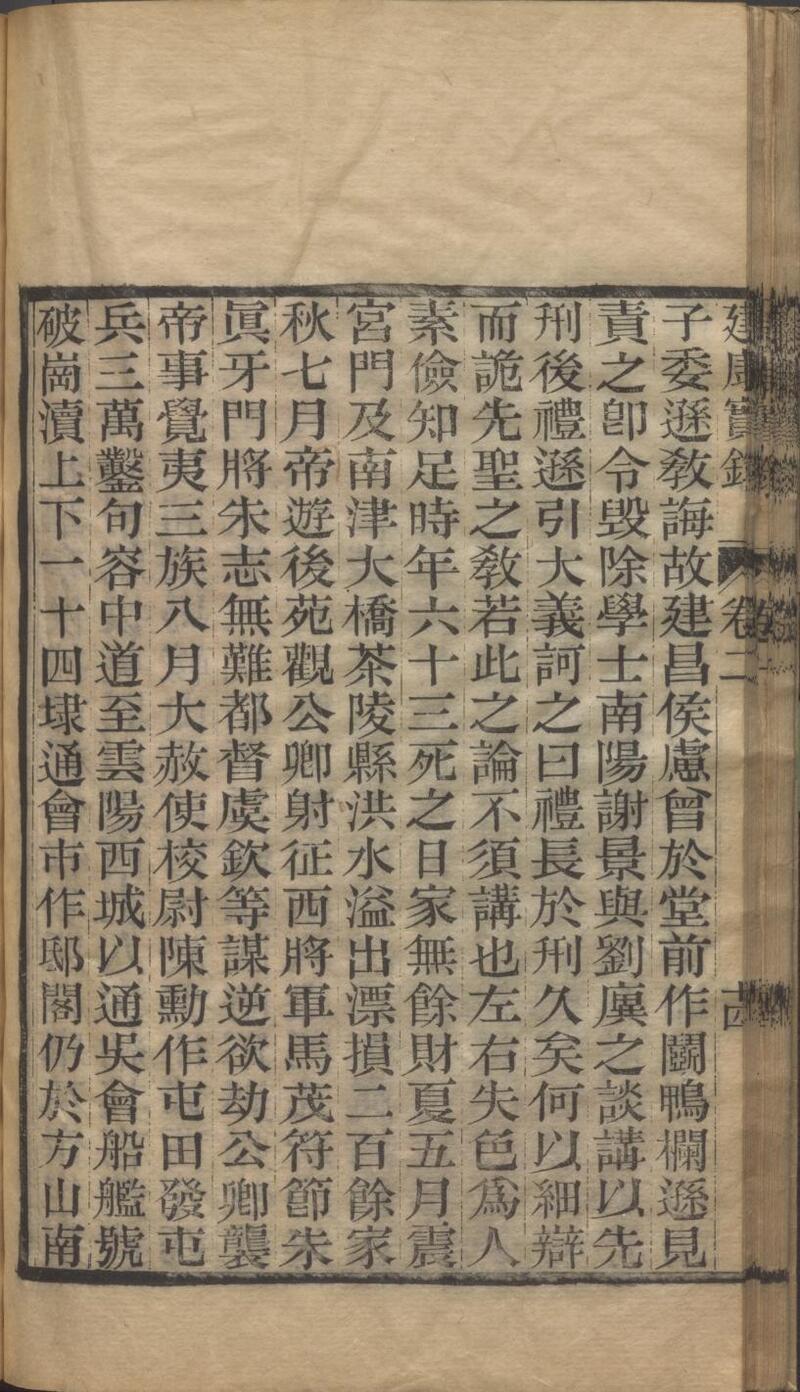 建康實錄 卷二
子委遜敎誨故建昌侯慮曾於堂前作鬭鴨欄遜見
責之卽令毀除學士南陽謝景與劉廙之談講以先
刑後禮遜引大義訶之曰禮長於刑久矣何以細辯
而詭先聖之敎若此之論不須講也左右失色爲人
素儉知足時年六十三死之日家無餘財夏五月震
宮門及南津大橋茶陵縣洪水溢出漂損二百餘家
秋七月帝遊後苑觀公卿射征西將軍馬茂符節朱
眞牙門將朱志無難都督虞欽等謀逆欲劫公卿襲
帝事覺夷三族八月大赦使校尉陳勳作屯田發屯
兵三萬鑿句容中道至雲陽西城以通吳會船艦號
破崗瀆上下一十四埭通會市作邸閣仍於方山南